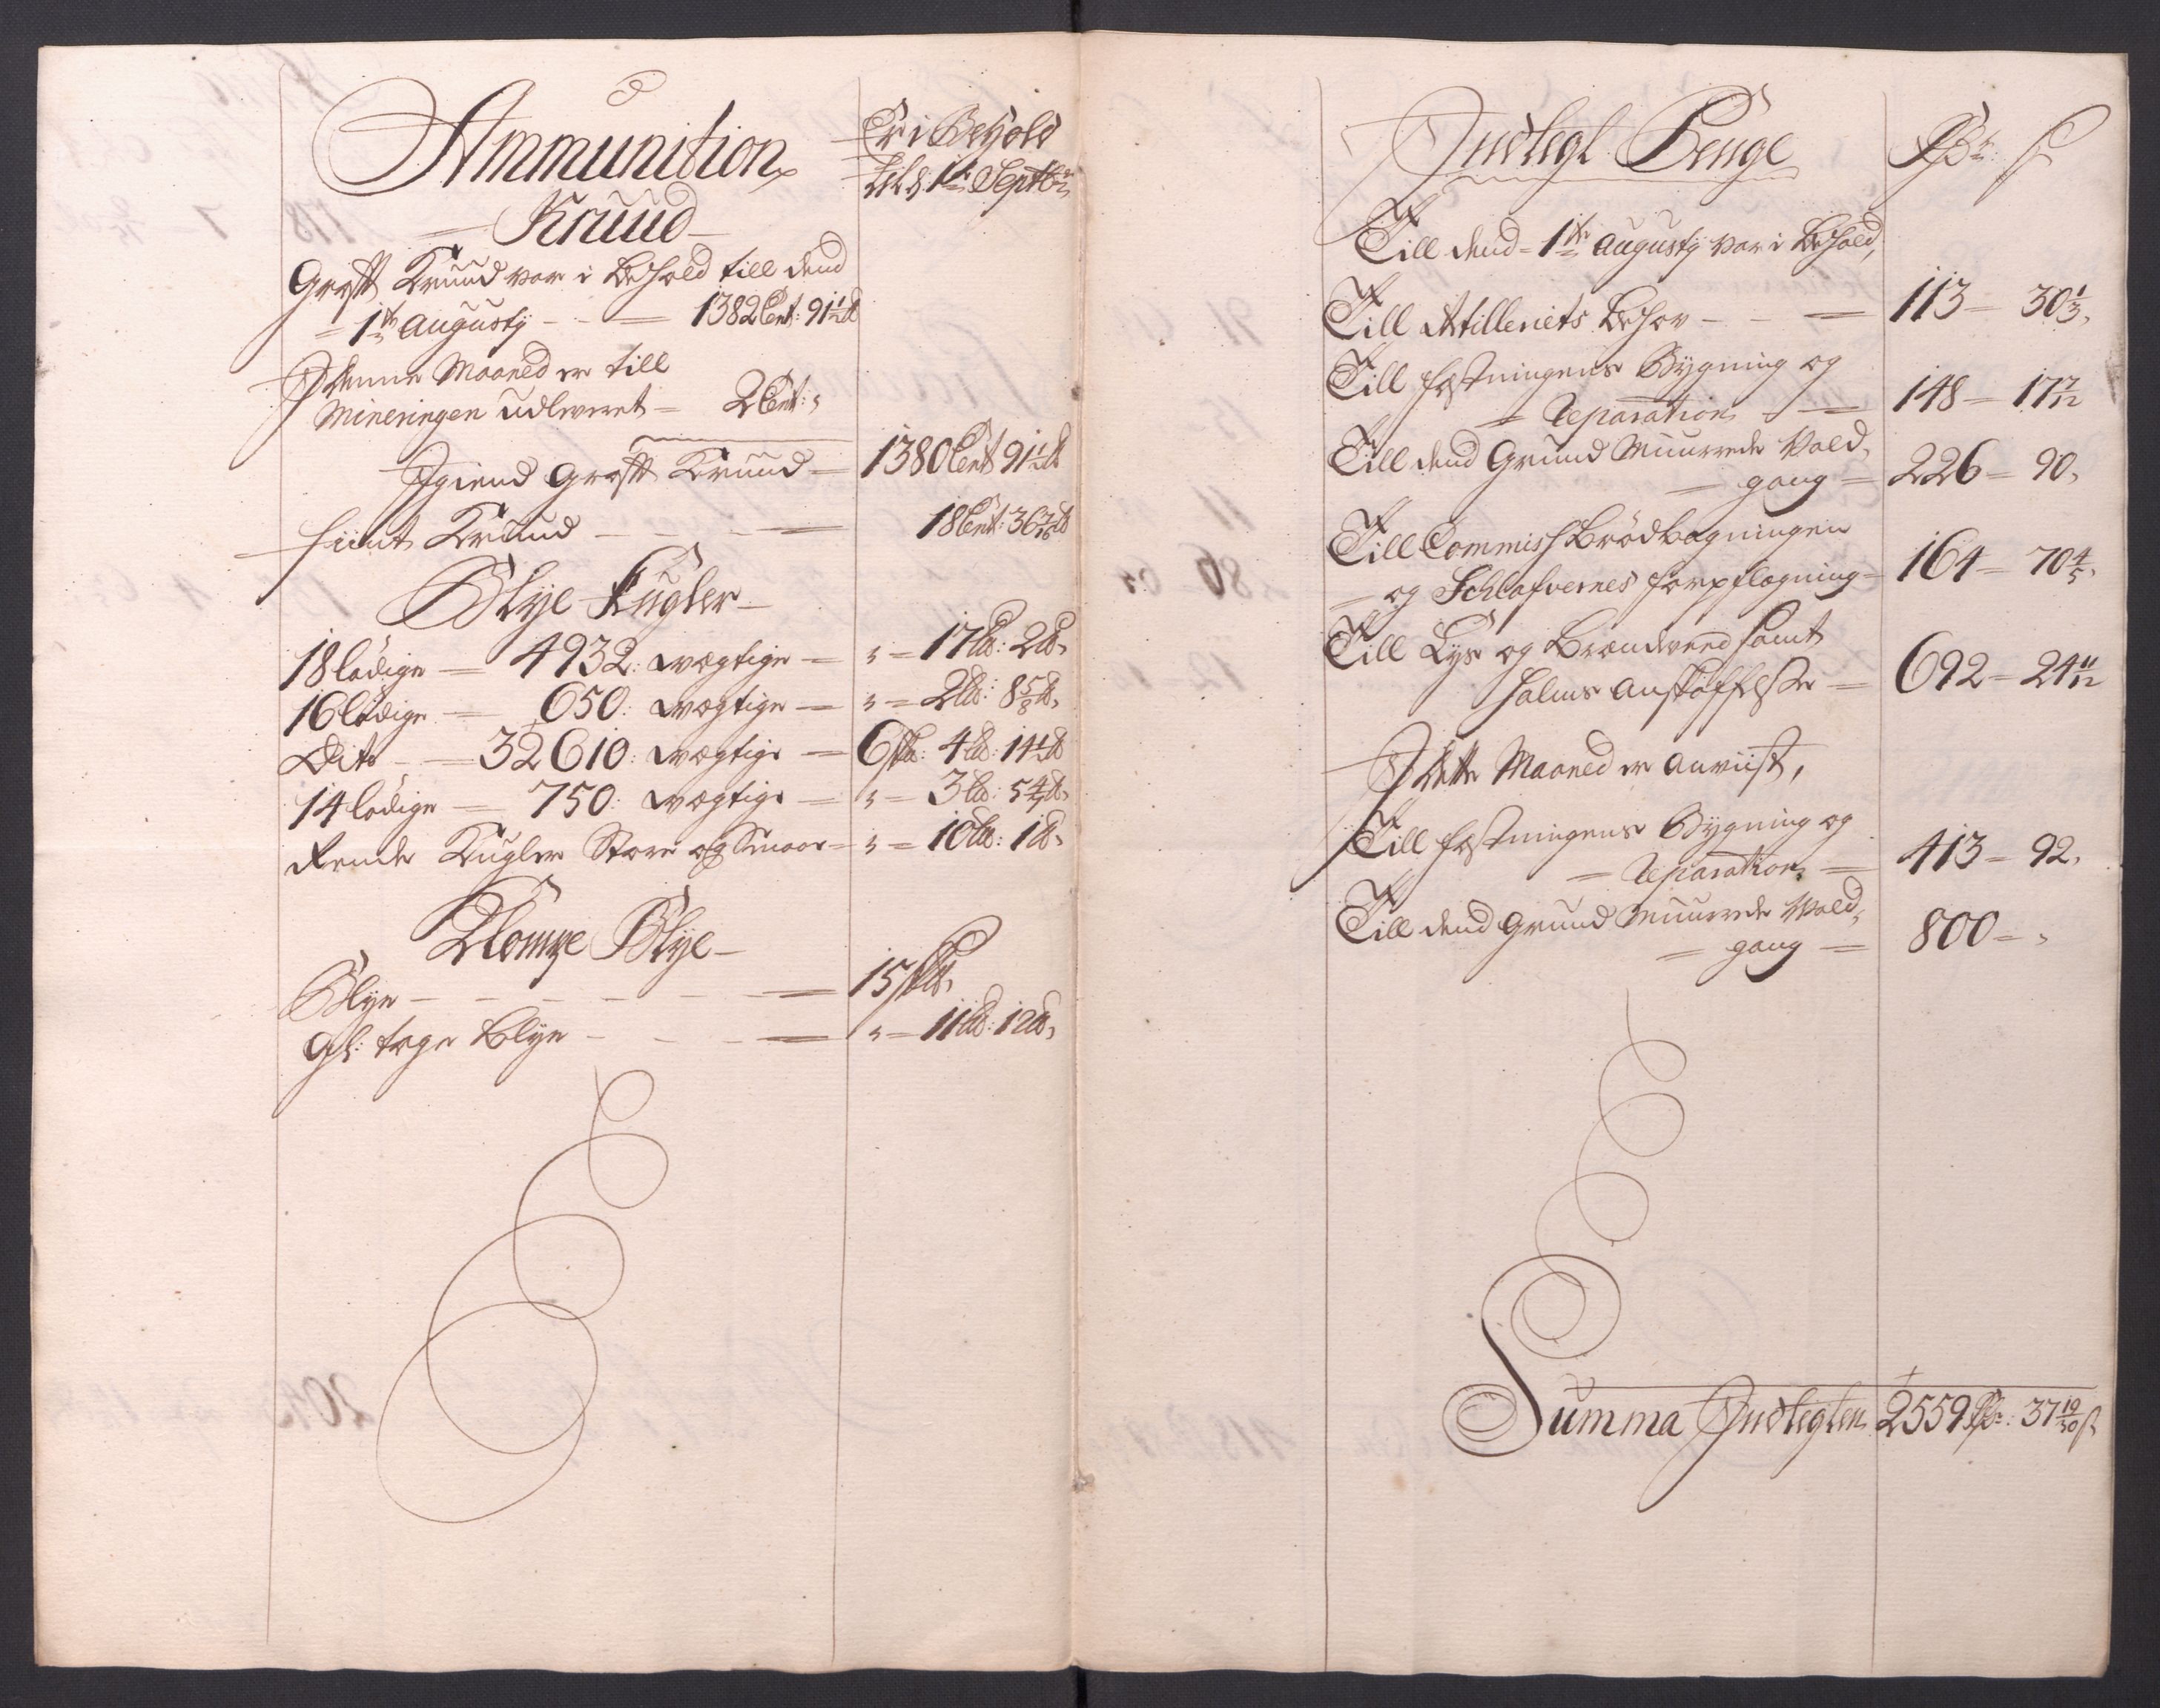 Ammunition
Er i Behold
till d: 1te Septbr
Kruud
Groft Kruud var i Behold till dend
1te Augustj 1382 Cent: 91½ lb
Denne Maaned er till
Mineringen udleveret = 2 Cent:
Igiend Groft Kruud = 1380 Cent 91½ lb
fiint Kruud = 18 Cent: 36 lb
Blye Kugler
18 lödige = 4932: vægtige = 17 Lb: 2 lb
16 lödige = 650: vægtige = 2 Lb: 8⅝ lb
Dito = 32610: vægtige = 6 skb: 4 Lb: 14 lb
14 lödige = 750: vægtige = 3 Lb: 5 lb
Rende Kugler Store og Smaae = 10 Lb: 1 lb
Klompe Blye
Blye = 15 skb
Gl: tage Blye = 11 Lb: 12 lb
Indlegt Penge
Rdr: ß
Till dend 1te Augustj var i Behold,
Till Artilleriets Behov = 113 = 30⅓
Till Fæstningens Bygning og
Reparation = 148 = 17 7/12
Till dend Grund Muurede Vold,
gang = 226 = 90
Till Commiss Brödbagningen
og Schlafvernes Forpflægning = 164 = 70⅘
Till Lys og Brændeveed samt
Halms Anskaffelse = 692 = 24 11/12
Dette Maaned er Anviist,
Till Fæstningens Bygning og
Reparation = 413 = 92
Till dend Grund Muurede Vold,
gang = 800 =
Summa Indlegten 2559 Rdr: 37 19/30 ß